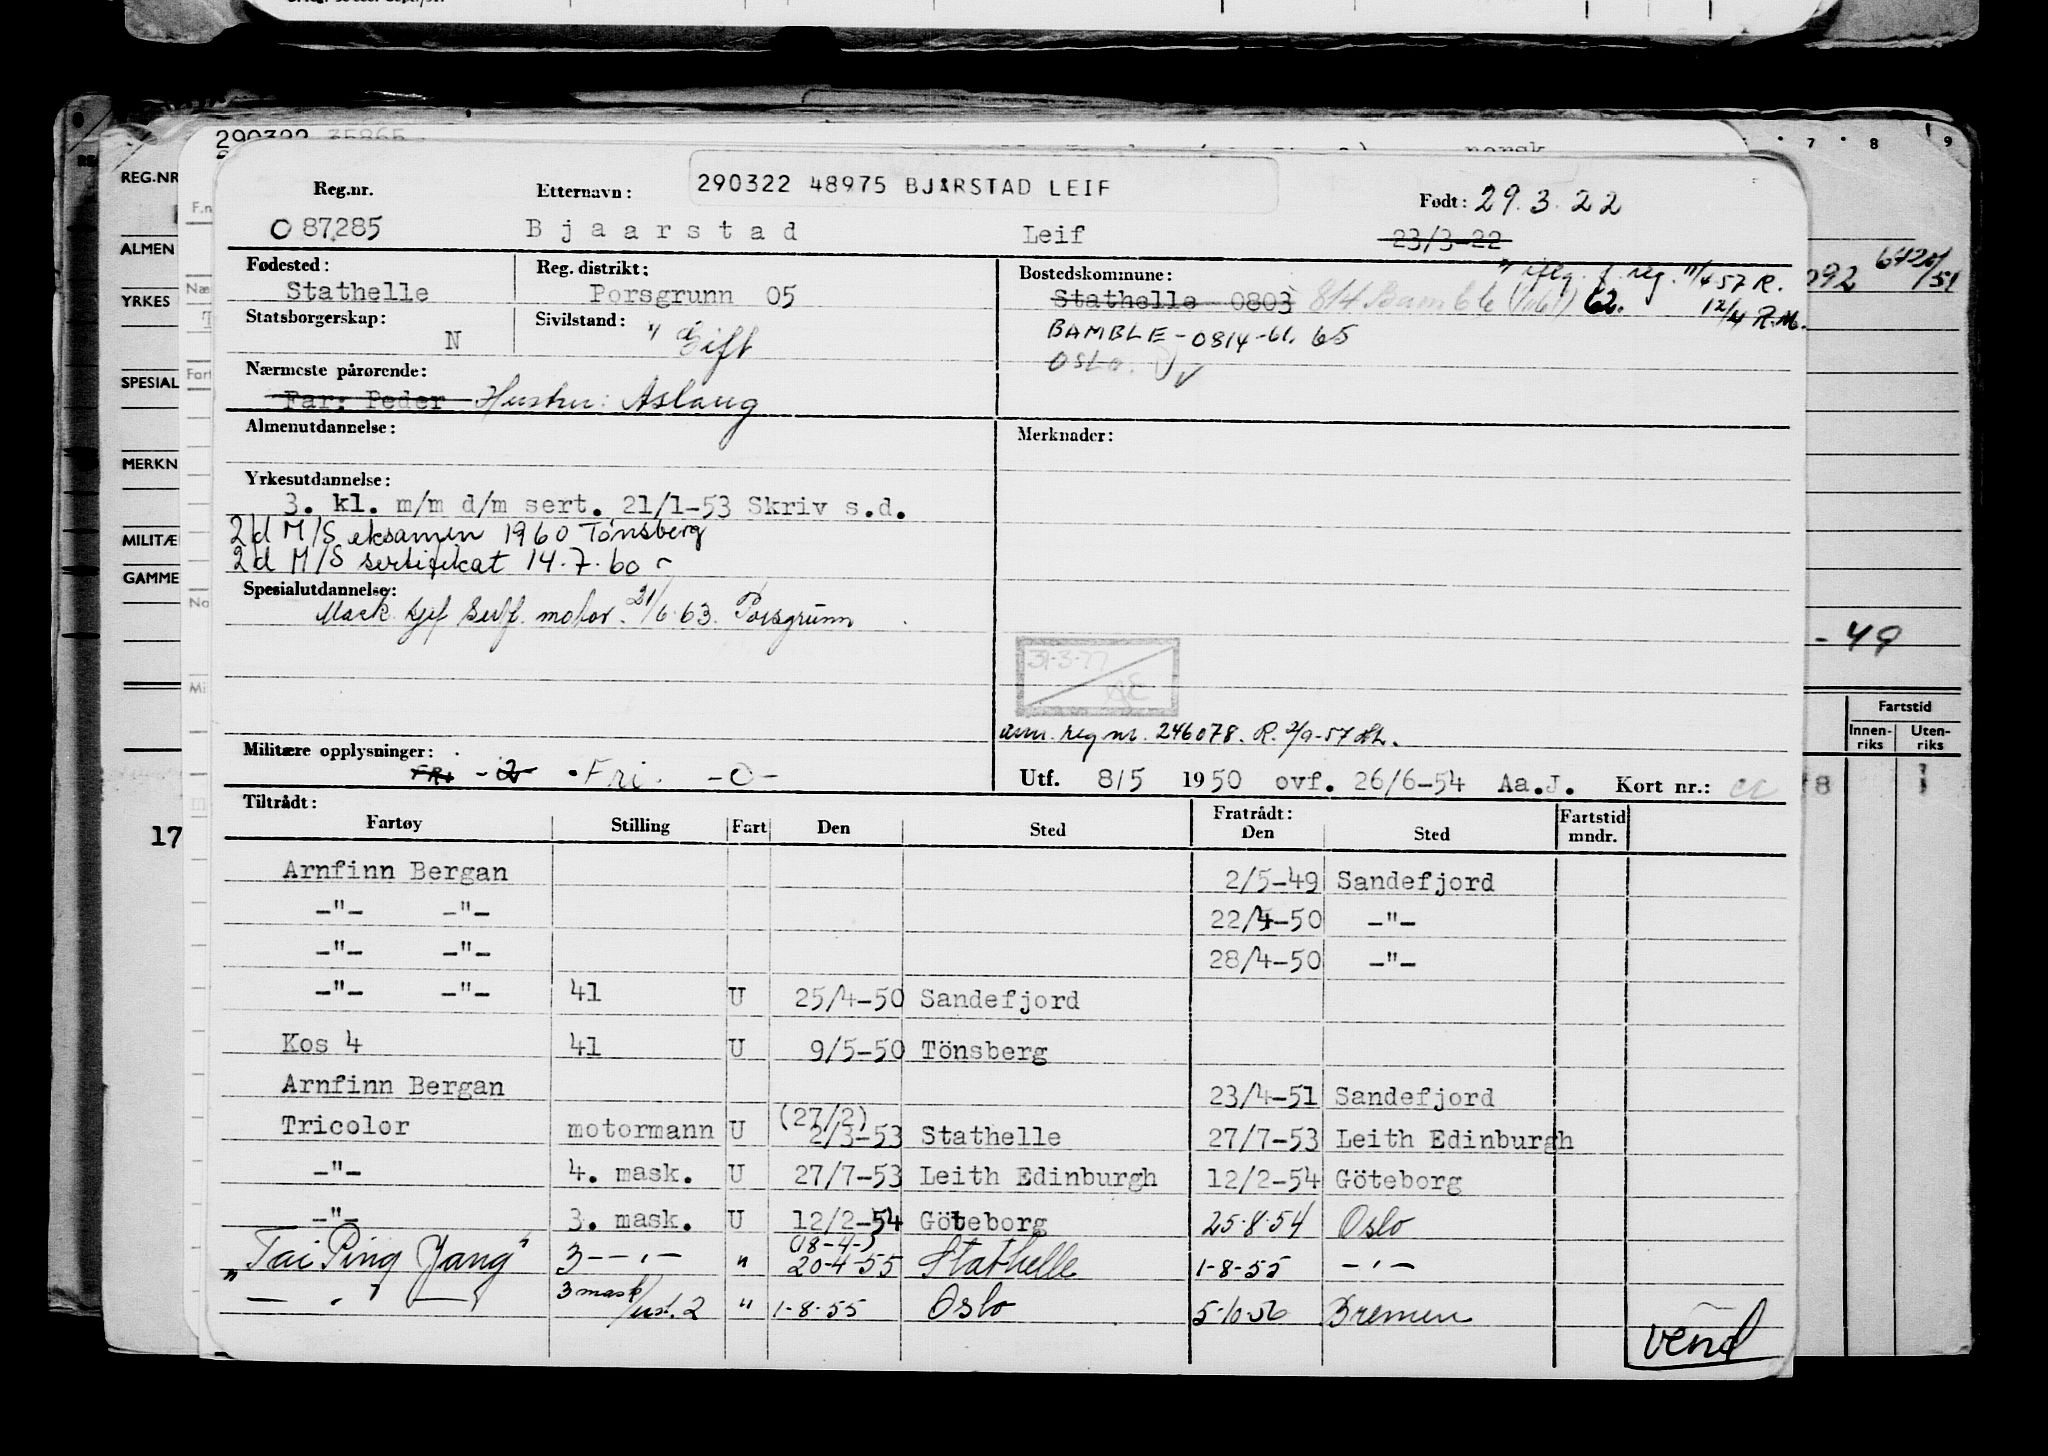 290322 35865
norsk
7 8 9
REG.NR
ALMEN
YRKES
SPESIAL
MERKN
MILITÆ
GAMME
17
092 6420/51
- 49
Fartstid
Innen-riks Uten-riks
Reg.nr. Etternavn: 290322 48975 BJARSTAD LEIF Født: 29.3.22
O 87285 Bjaarstad Leif 23/3-22
Fødested: Reg. distrikt: Bostedskommune: " iflg. f. reg. 11/4 57 R.
Stathelle Porsgrunn 05 Stathelle 0803 814 Bamble (1/61) 62. 12/4 R.M.
Statsborgerskap: Sivilstand: BAMBLE - 0814 - 61. 65
N " Gift OSLO.
Nærmeste pårørende:
Far: Peder Hustru: Aslaug
Almenutdannelse: Merknader:
Yrkesutdannelse:
3. kl. m/m d/m sert. 21/1-53 Skriv s.d.
2d M/S eksamen 1960 Tønsberg
2d M/S sertifikat 14.7.60
Spesialutdannelse:
Mask. sjef Sulf. motor. 21/6.63. Porsgrunn
31-3-77
ann. reg nr. 246078. R. 2/9-57
Militære opplysninger:
FRI - 2 • Fri. -O-
Utf. 8/5 1950 ovf. 26/6-54 Aa.J. Kort nr.:
Tiltrådt: Fratrådt: Fartstid
Fartøy Stilling Fart Den Sted Den Sted mndr.
Arnfinn Bergan 2/5-49 Sandefjord
-"- -"- 22/4-50 -"-
-"- -"- 28/4-50 -"-
-"- -"- 41 U 25/4-50 Sandefjord
Kos 4 41 U 9/5-50 Tönsberg
Arnfinn Bergan 23/4-51 Sandefjord
Tricolor motormann U (27/2) 2/3-53 Stathelle 27/7-53 Leith Edinburgh
-"- 4. mask. U 27/7-53 Leith Edinburgh 12/2-54 Göteborg
-"- 3. mask. U 12/2-54 Göteborg 25.8.54 Oslo
"Tai Ping Yang" 3 - - " - " (18-4-) 20-4-55 Stathelle 1-8-55 - " -
- " - 3 mask/ust. 2 " 1-8-55 Oslo 5-10-56 Bremen
vend